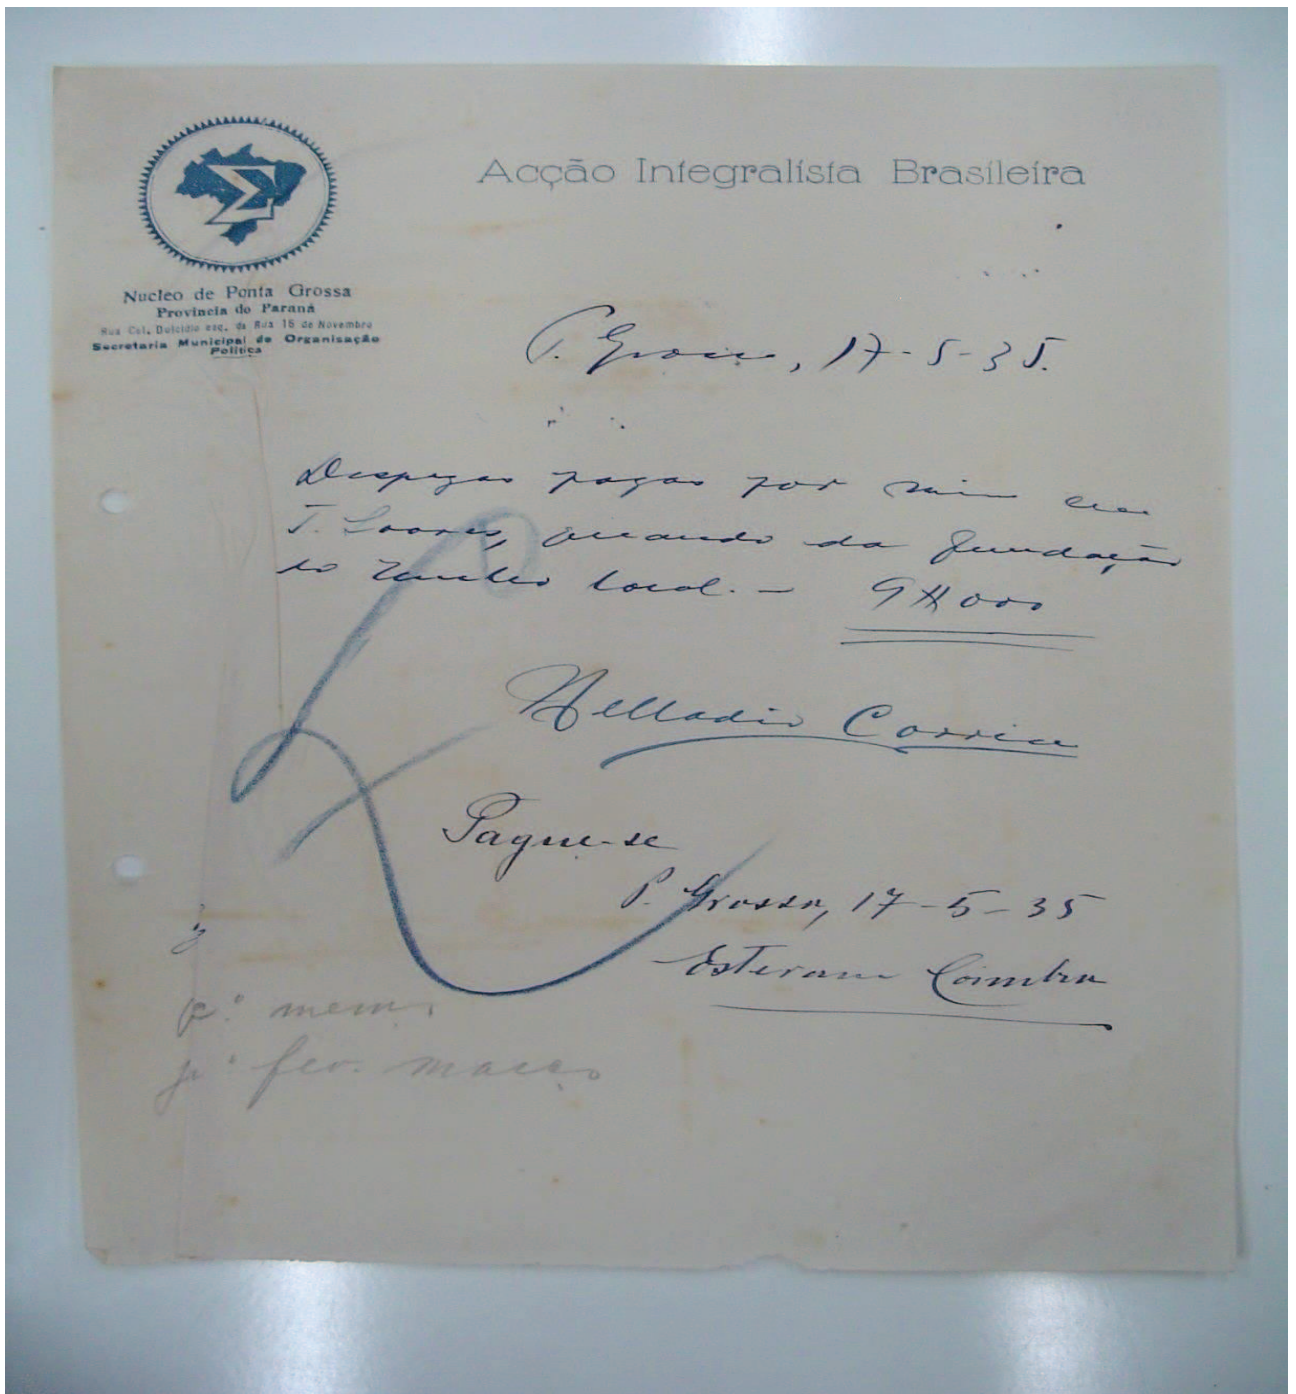 Acção Integralista Brasileira
Σ
Nucleo de Ponta Grossa
Provincia do Paraná
Rua Cel. Dulcidio esq. da Rua 15 de Novembro
Secretaria Municipal de Organisação
Politica
P. Grossa, 17-5-35.
Despezas pagas por mim em
T. Soares, quando da fundação
do nucleo local. - 9$000
Correia
Pague-se
P. Grossa, 17-5-35
Estevam Coimbra
fev. março